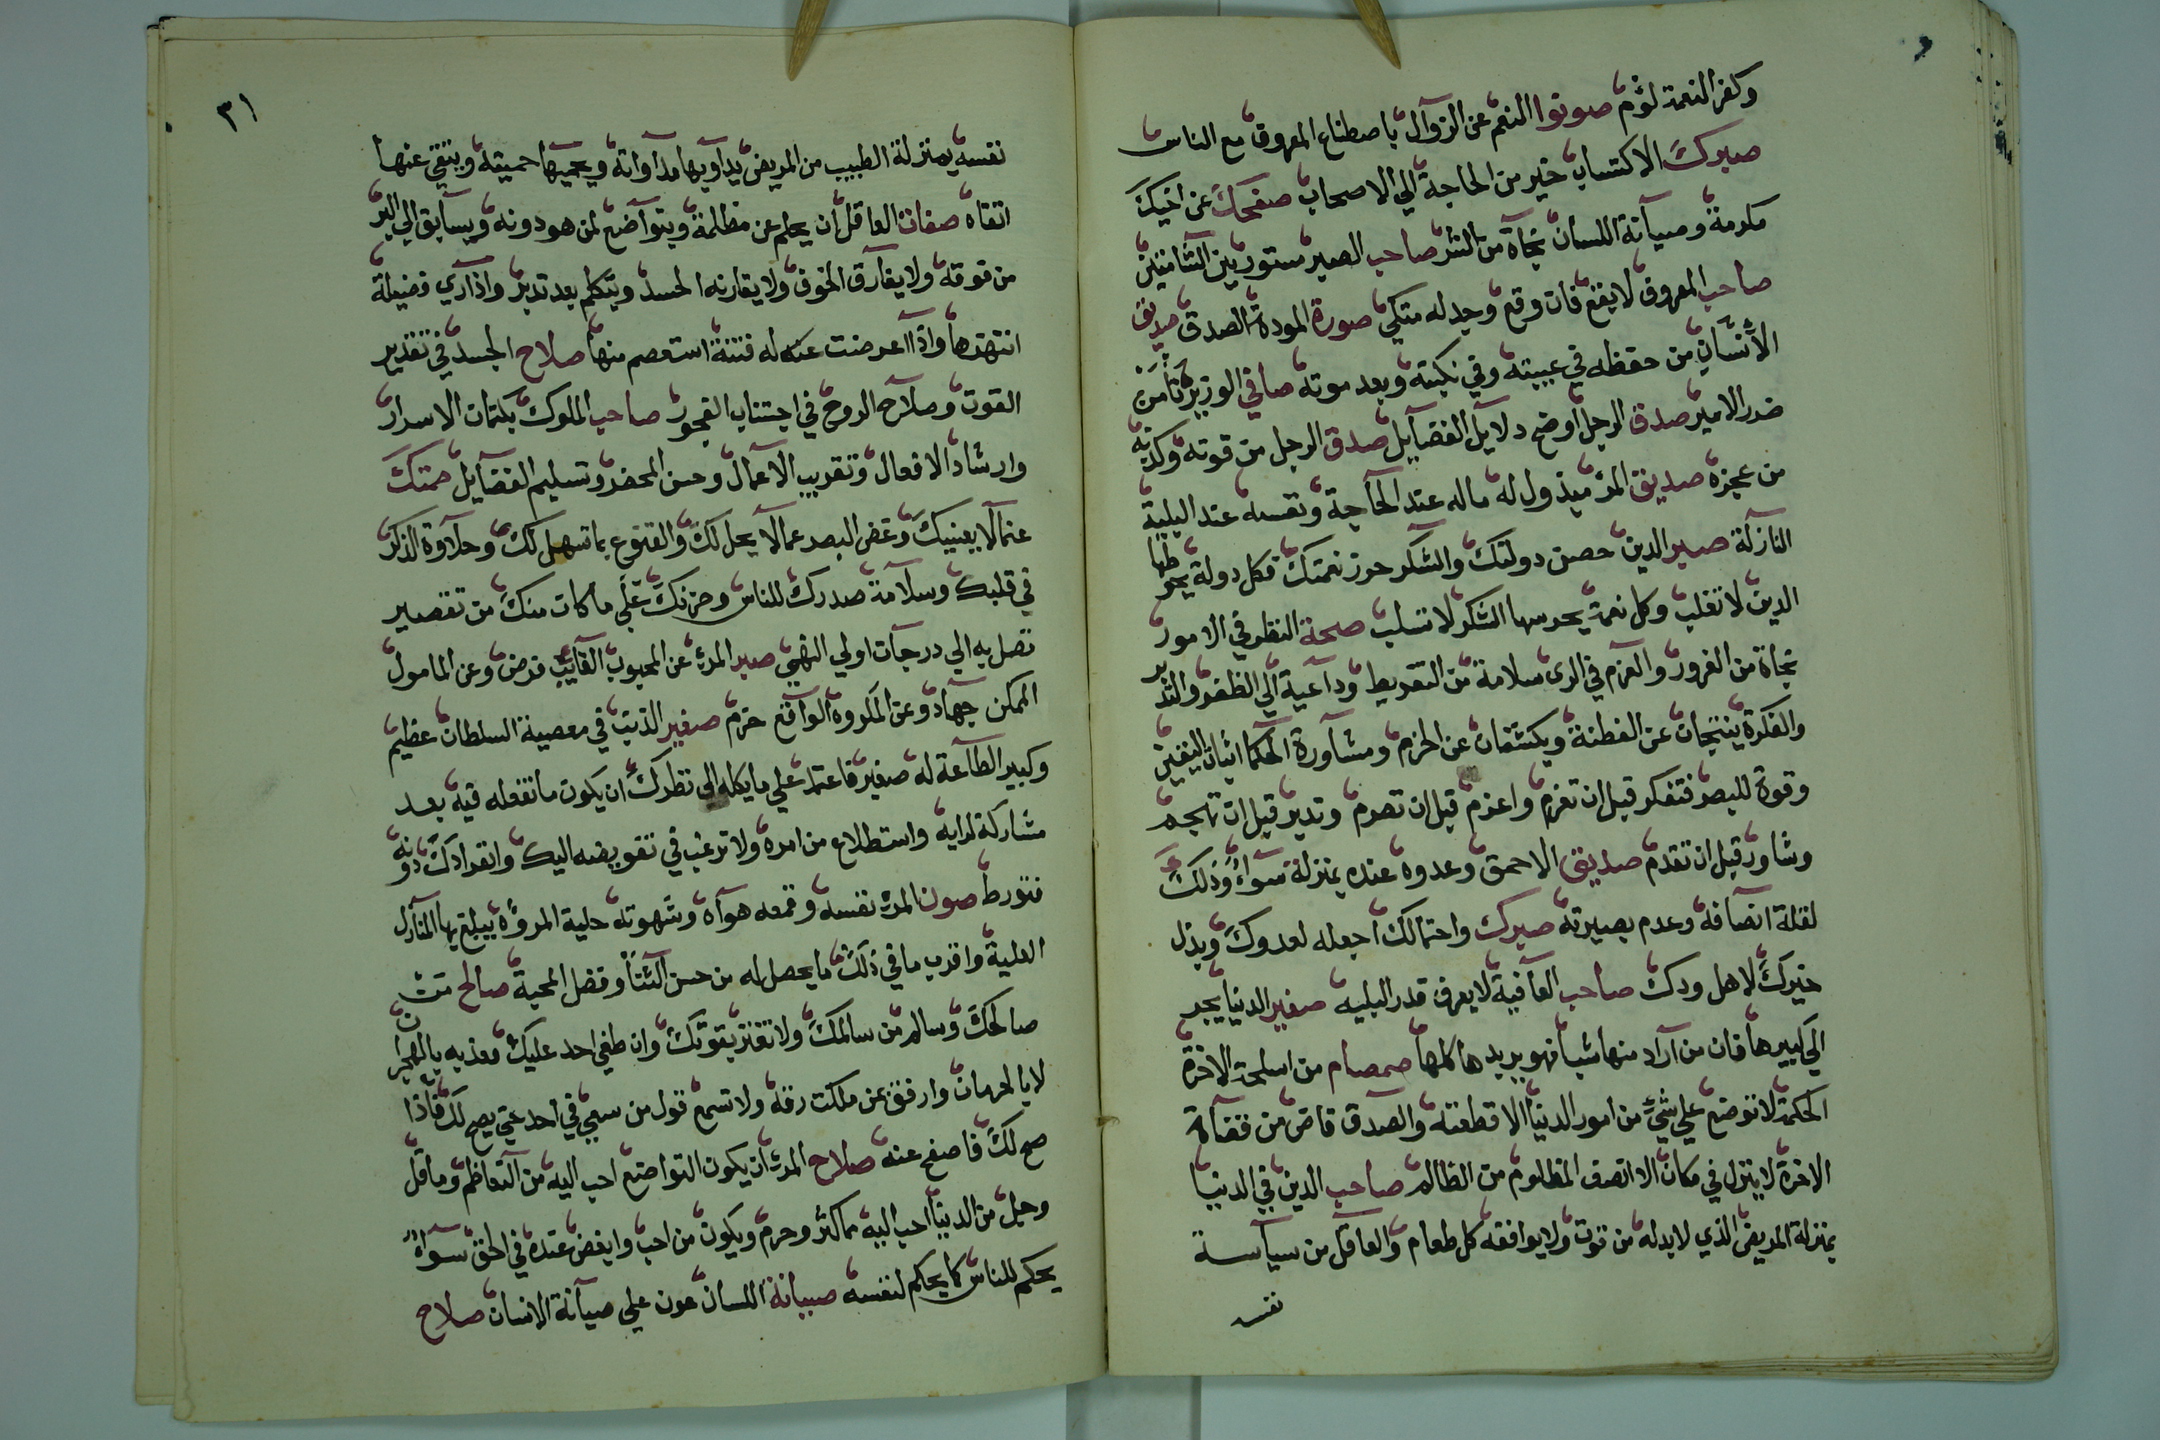 وكفر النعمة لؤم صونوا النعم عن الزوال باصطناع المعروف مع الناس
صبرك الاكتساب خير من الحاجة الي الاصحاب صفحك عن اخيك
مكرمة وصيانة اللسان نجاة من الشر صاحب الصبر مستور بين الشامتين
صاحب المعروف لا يقع فان وقع وجد له متكي صورة المودة الصدق صديق
الانسان من حفظه في غيبته وفي نكبته وبعد موته صافي الوزير تأمن
ضرر الامير صدق الرجل اوضح دلايل الفضايل صدق الرجل من قوته وكذبه
من عجزه صديق المرء مبذول له ماله عند الحاجة ونفسه عند البلية
النازلة صير الدين حصن دولتك والشكر حرز نعمتك فكل دولة يحوطها
الدين لا تغلب وكل نعمة يحرسها الشكر لا تسلب صحة النظر في الامور
نجاة من الغرور والعزم في الرى سلامة من التفريط وداعية الي الظفر والتدبير
والفكرة ينتجان عن الفطنة ويكشفان عن الحزم ومشاورة الحكما اثبات اليقين
وقوة للبصر فتفكر قبل ان تعزم واعزم قبل ان تصرم وتدبر قبل ان تهجم
وشاور قبل ان تقدم صديق الاحمق وعدوه عنده بمنزلة سواء وذلك
لقلة انصافه وعدم بصيرته صبرك واحتمالك اجعله لعدوك وبذل
خيرك لاهل ودك صاحب العافية لا يعرف قدر البليه صغير الدنيا يجر
الي كبيرها فان من اراد منها شيأ فهو يريدها كلها صمصام من اسلحة الاخرة
الحكمة لا توضع علي شيء من امور الدنيا الا قطعته والصدق قاض من قضاة
الاخرة لا ينزل في مكان الا انصف المظلوم من الظالم صاحب الدين في الدنيا
بمنزلة المريض الذي لا بد له من قوت ولا يوافقه كل طعام والعاقل من سياسة
نفسه
٣١
نفسه بمنزلة الطبيب من المريض يداويها مداواته ويحميها حميته ويتقي عنها
اتقاه صفات العاقل ان يحلم عن مظلمة ويتواضع لمن هو دونه ويسابق الي البر
من فوقه ولا يفارق الخوف ولا يقارنه الحسد ويتكلم بعد تدبر واذا راي فضيلة
انتهزها واذا اعرضت له فتنة استعصم منها صلاح الجسد في تقدير
القوت وصلاح الروح في اجتناب الفجور صاحب الملوك بكتمان الاسرار
وارشاد الافعال وتقريب الاعمال وحسن المحضر وتسليم الفضايل صمتك
عنما لا يعنيك وغض البصر عما لا يحل لك والقنوع بما تسهل لك وحلاوة الذكر
في قلبك وسلامة صدرك للناس وحزنك علي ما كان منك من تقصير
تصل به الي درجات اولي النهي صبر المرء عن المحبوب الغايب فرض وعن المامول
الممكن جهاد وعن المكروه الواقع حزم صغير الذنب في معصية السلطان عظيم
وكبير الطاعة له صغير فاعتمد علي ما يكله الى نظرك ان يكون ما تفعله فيه بعد
مشاركة لرايه واستطلاع من امره ولا ترغب في تفويضه اليك وانفرادك دونه
فتورط صون المرء نفسه وقمعه هواه وشهوته حلية المروة يبلغ بها المنازل
العلية واقرب ما في ذلك ما يحصل له من حسن الثنا وفضل المحبة صالح من
صالحك وسالم من سالمك ولا تغتر بقوتك وان طغي احد عليك فعذبه بالهجران
لا بالحرمان وارفق بمن ملكت رقه ولا تسمع قول من سعي في احد حتي يصح لك فاذا
صح لك فاصفح عنه صلاح المرء ان يكون التواضع احب اليه من التعاظم وما قل
وحل من الدنيا احب اليه مما كثر وحرم ويكون من احب وابغض عنده في الحق سواء
يحكم للناس كما يحكم لنفسه صيانة اللسان عون علي صيانة الانسان صلاح